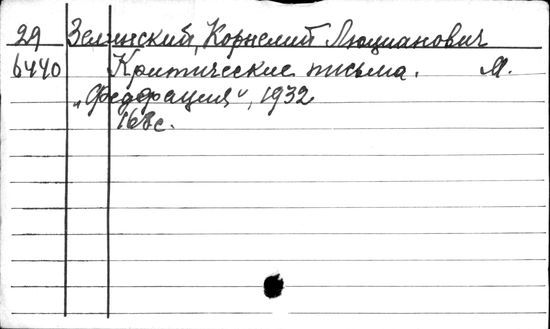 29 Зелинский, Корнелий Люцианович
6440 Критические письма. М.
„Федерация“, 1932
168с.